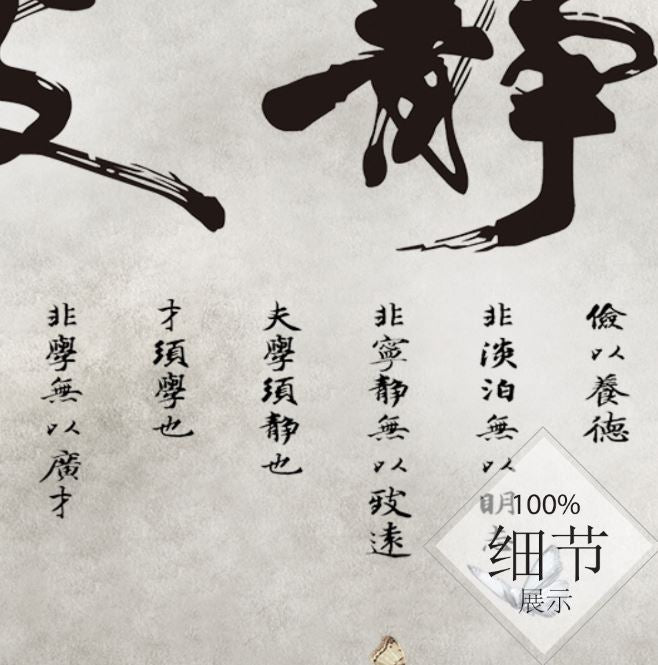 静
儉以養德
非淡泊無以明
非寧静無以致遠
夫學須静也
才須學也
非學無以廣才
100%
细节
展示